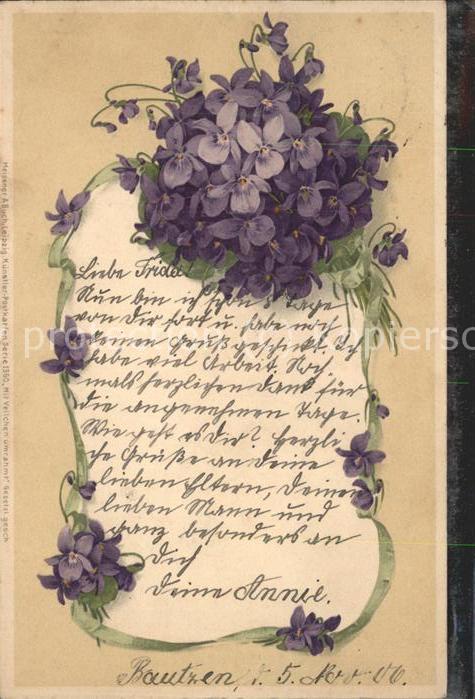 Liebe Frida!
Nun bin ich schon 8 Tage
von Dir fort u. habe noch
keinen Gruß geschickt. Ich
habe viel Arbeit. Noch
mals herzlichen Dank für
die angenehmen Tage.
Wie geht es Dir? Herzli
che Grüße an deine
lieben Eltern, Deinen
lieben Mann und
ganz besonders an
Dich
deine Annie.
Bautzen, d. 5. Nov. 06.
Meissner & Buch, Leipzig. Künstler-Postkarten Serie 1360. „Mit Veilchen umrahmt“. Gesetzl. gesch.